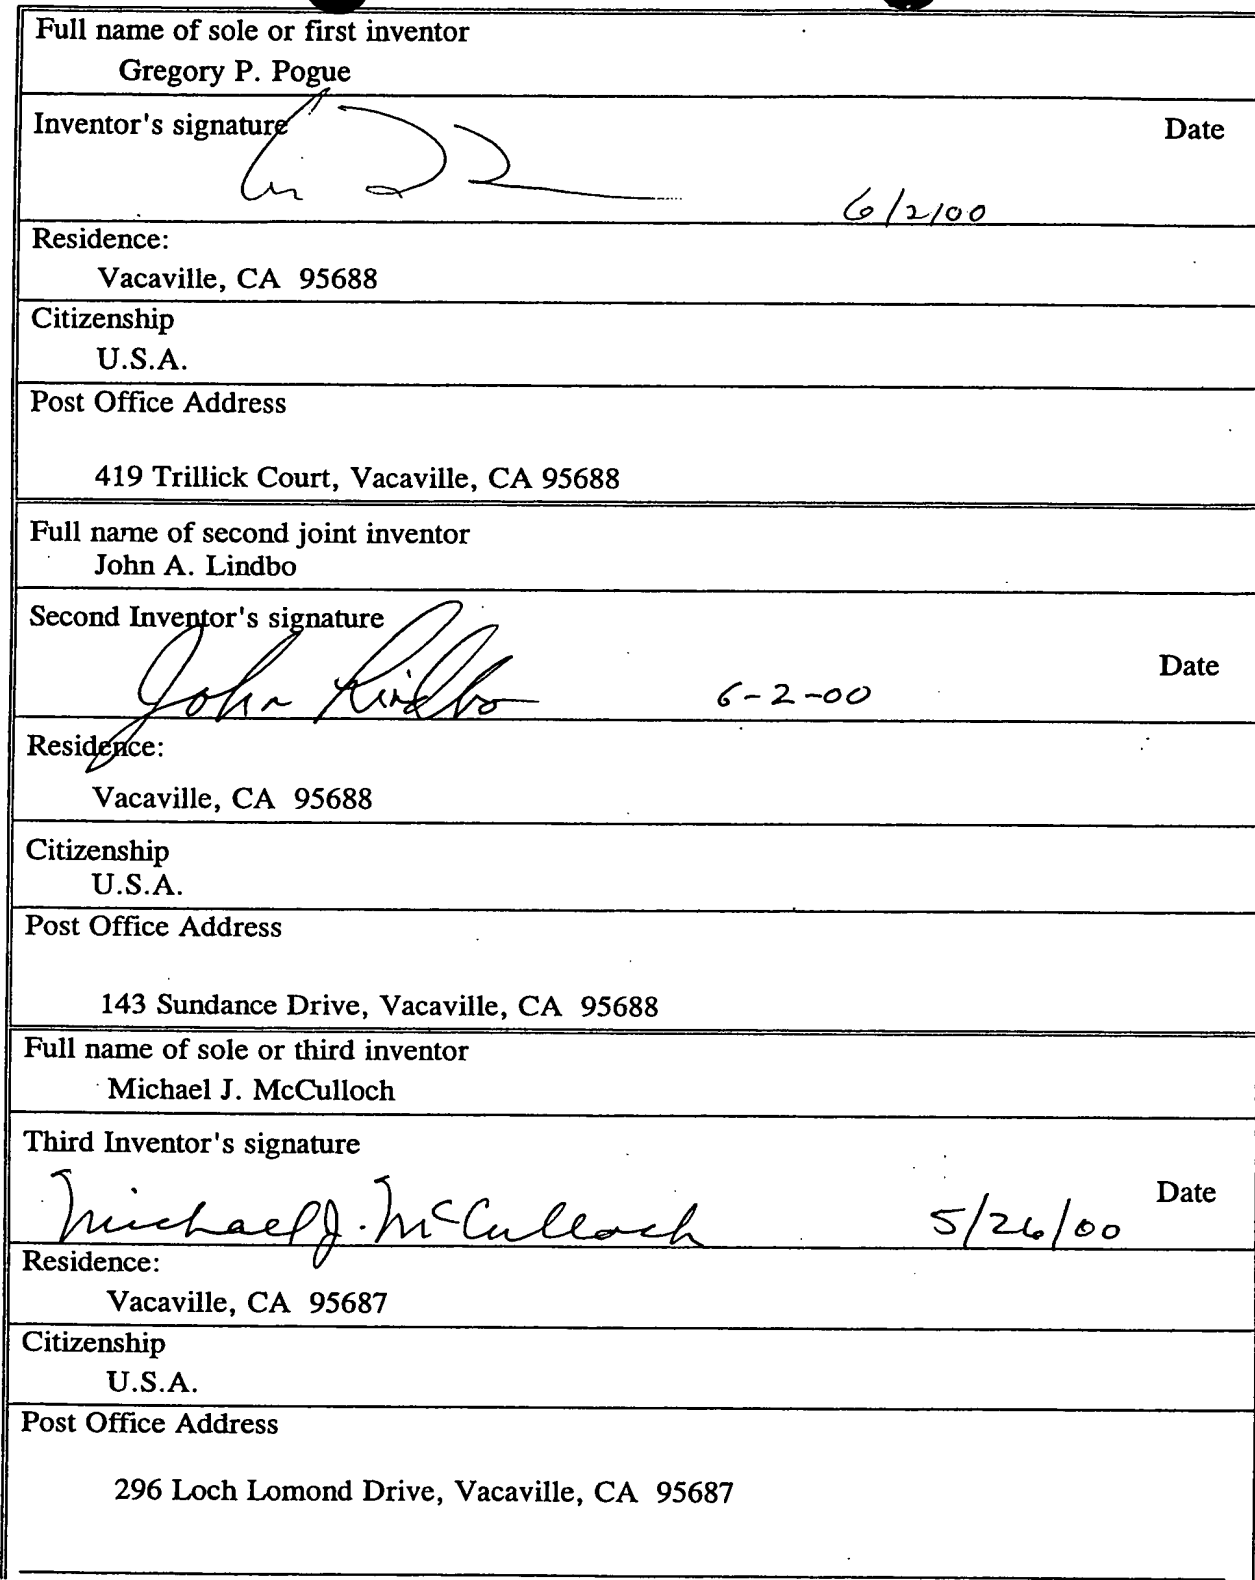 Full name of sole or first inventor
Gregory P. Pogue
Inventor's signature Date
6/2/00
Residence:
Vacaville, CA 95688
Citizenship
U.S.A.
Post Office Address
419 Trillick Court, Vacaville, CA 95688
Full name of second joint inventor
John A. Lindbo
Second Inventor's signature
Date
John Lindbo 6-2-00
Residence:
Vacaville, CA 95688
Citizenship
U.S.A.
Post Office Address
143 Sundance Drive, Vacaville, CA 95688
Full name of sole or third inventor
Michael J. McCulloch
Third Inventor's signature
Date
Michael J. McCulloch 5/26/00
Residence:
Vacaville, CA 95687
Citizenship
U.S.A.
Post Office Address
296 Loch Lomond Drive, Vacaville, CA 95687